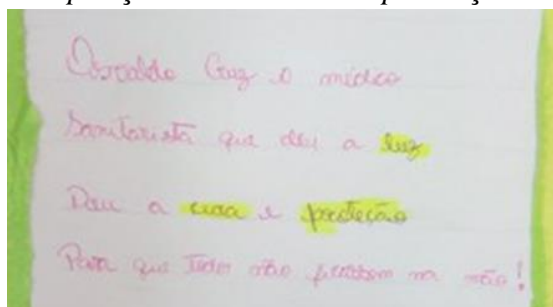 Osvaldo Cruz o médico
Sanitarista que deu a luz
Deu a cura e proteção
Para que todos não na mão!